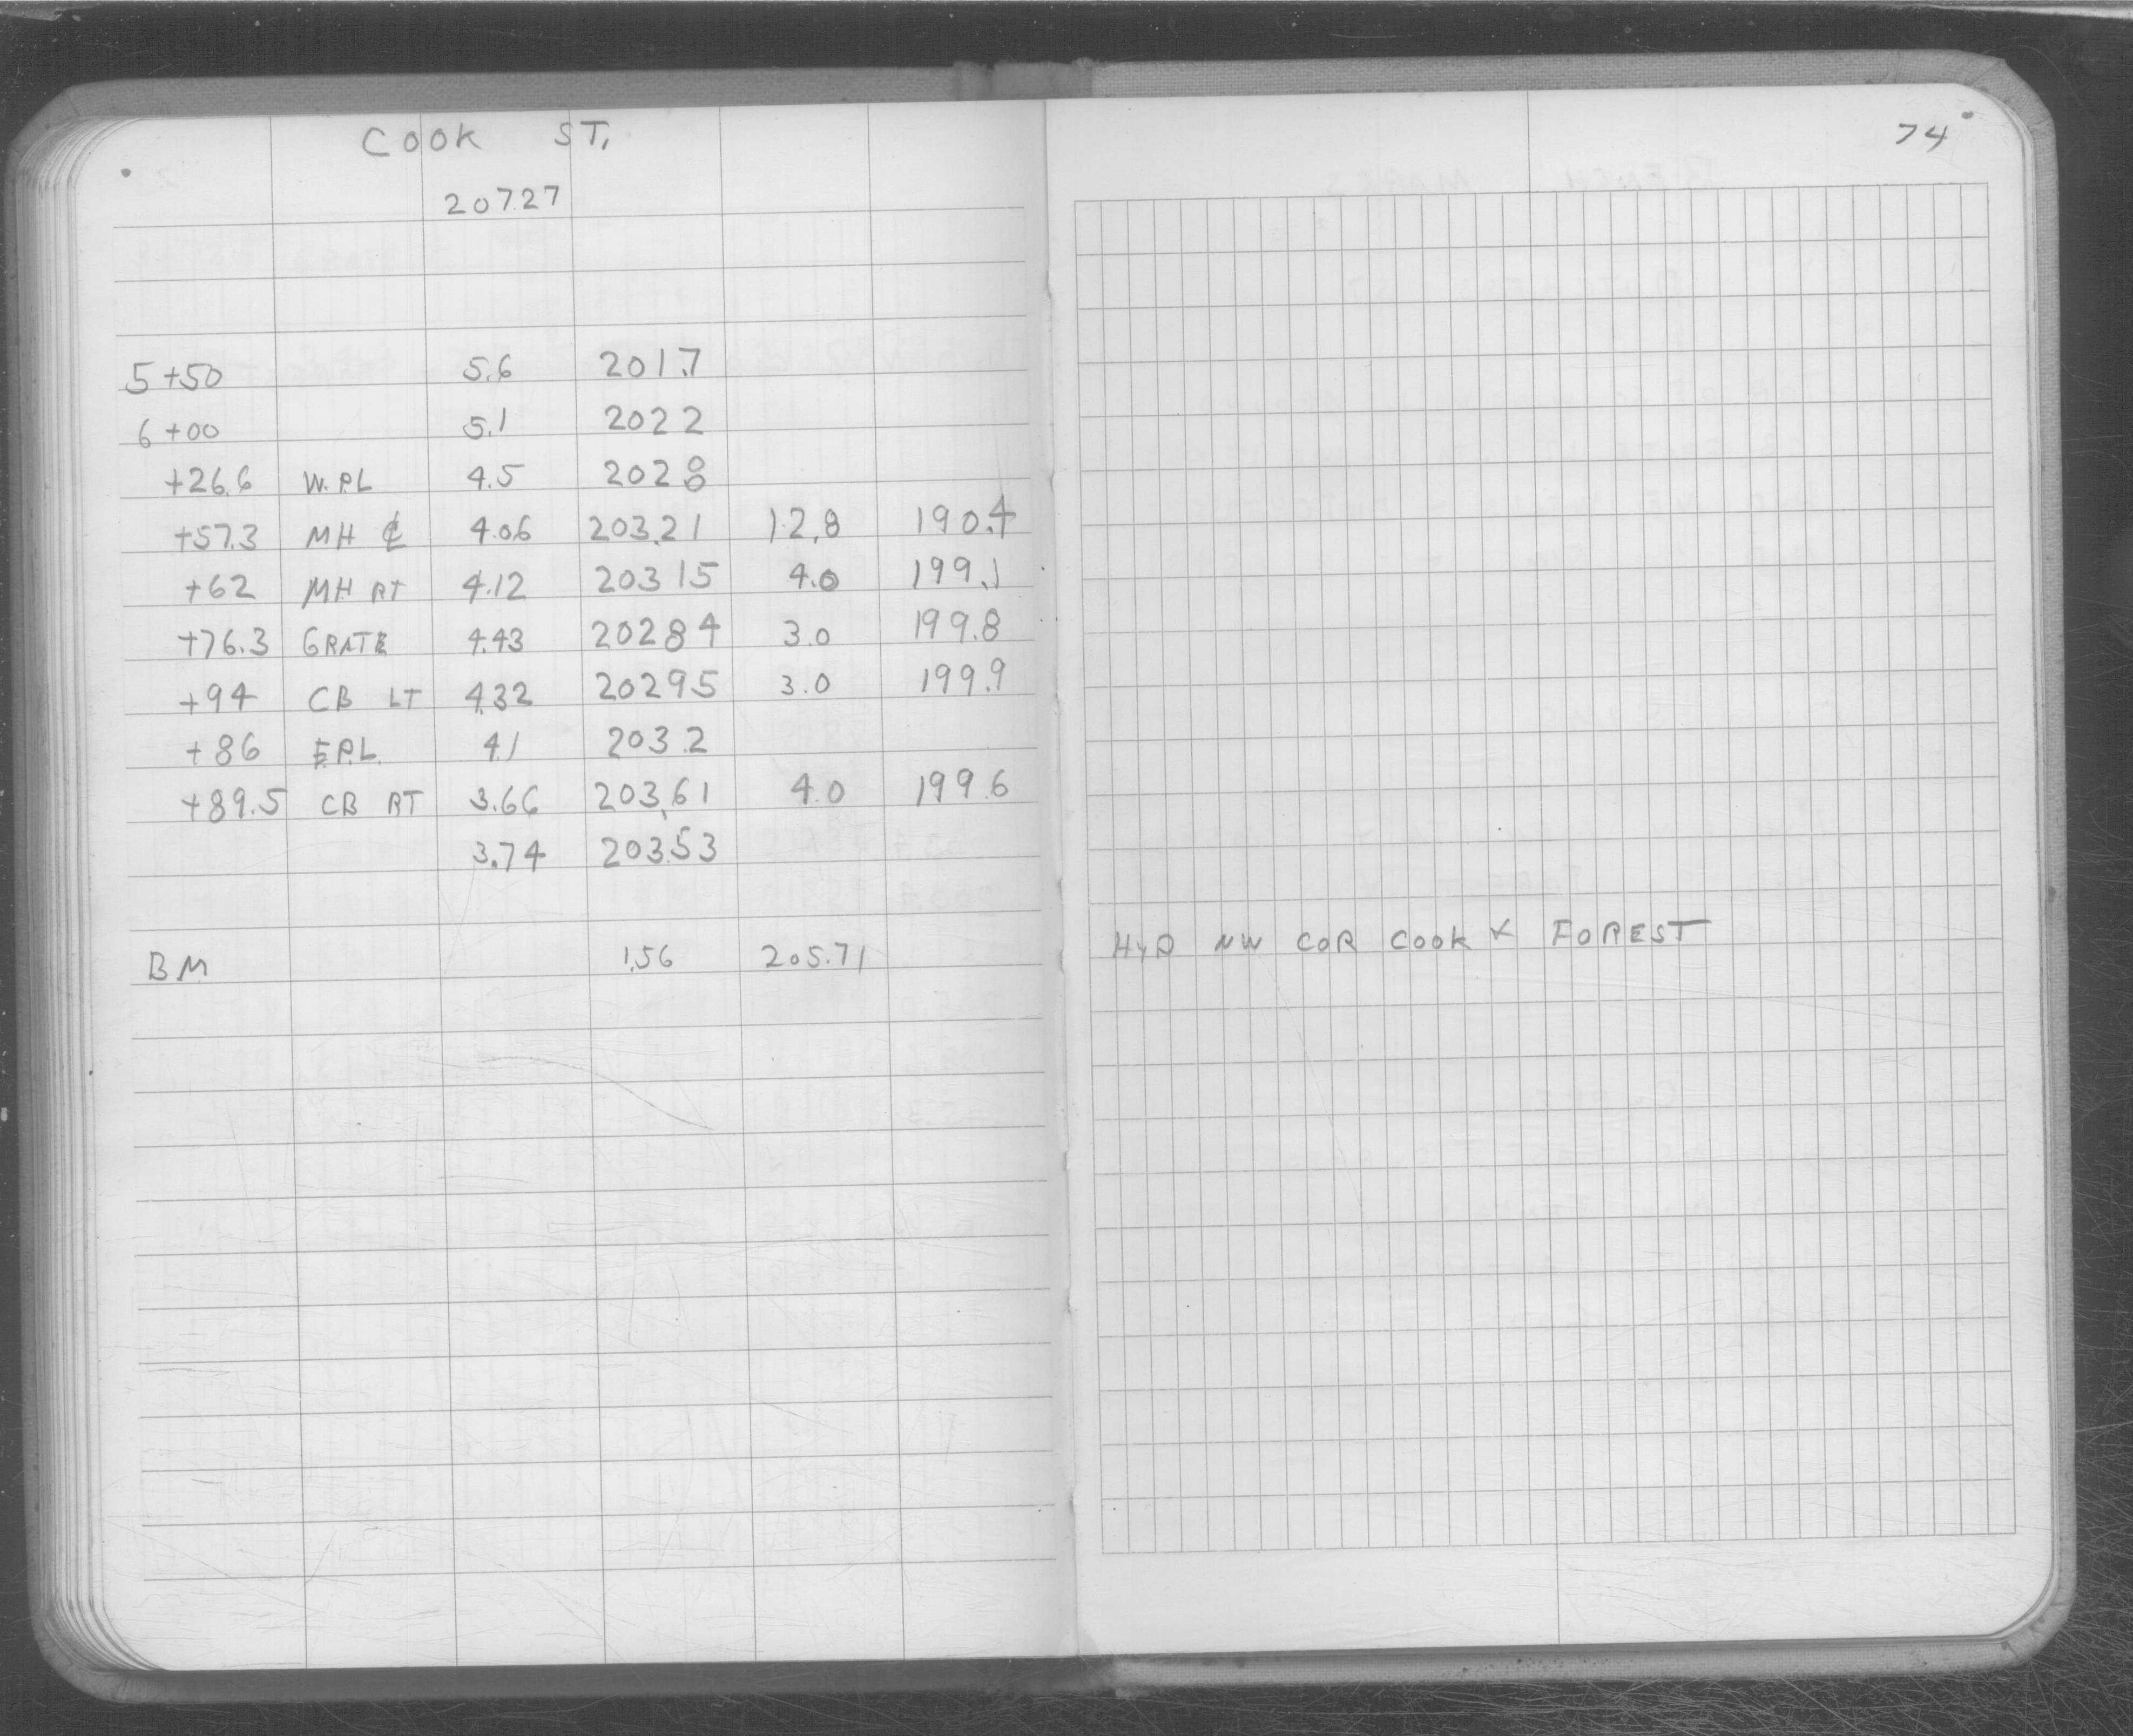 COOK ST.
74
207.27
5+50 5.6 201.7
6+00 5.1 202 2
+26.6 W.PL 4.5 202 8
+57.3 MH ℄ 4.06 203.21 12.8 190.4
+62 MH RT 4.12 203 15 4.0 199.1
+76.3 GRATE 4.43 202 84 3.0 199.8
+94 CB LT 4.32 202 95 3.0 199.9
+86 E.P.L. 4.1 203.2
+89.5 CB RT 3.66 203.61 4.0 199.6
3.74 203.53
BM 1.56 205.71 HYD NW COR COOK & FOREST